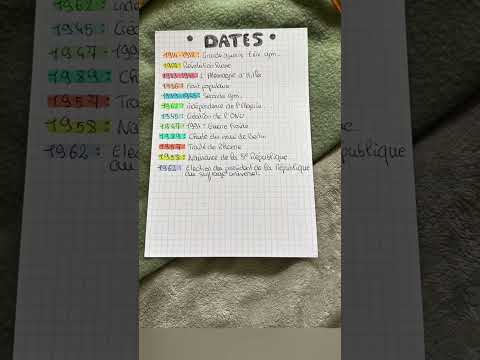 • DATES •
1914-1918: Grande guerre 1ère gm.
1917: Révolution Russe
1933-1945: L'Allemagne d'Hitler
1936: Front populaire
1939-1945: Seconde gm.
1962: indépendance de l'Algérie
1945: Création de l'ONU
1947-1991: Guerre froide
1989: Chute du mur de Berlin
1957: Traité de Rome
1958: Naissance de la 5e République
1962: Election du président de la République
au suffrage universel.